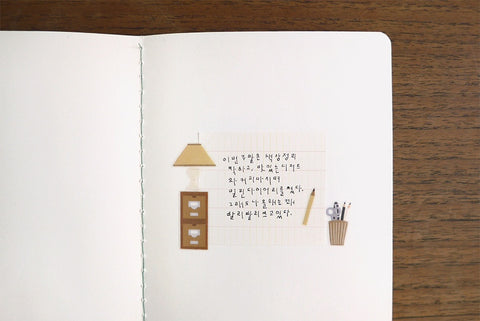 이번 주말은 책장정리
싹 하고, 맛있는 디저트
와 커피마시며
밀린 다이어리를 썼다.
그래도 나 올해는 꽤
빨리빨리 쓰고있다.